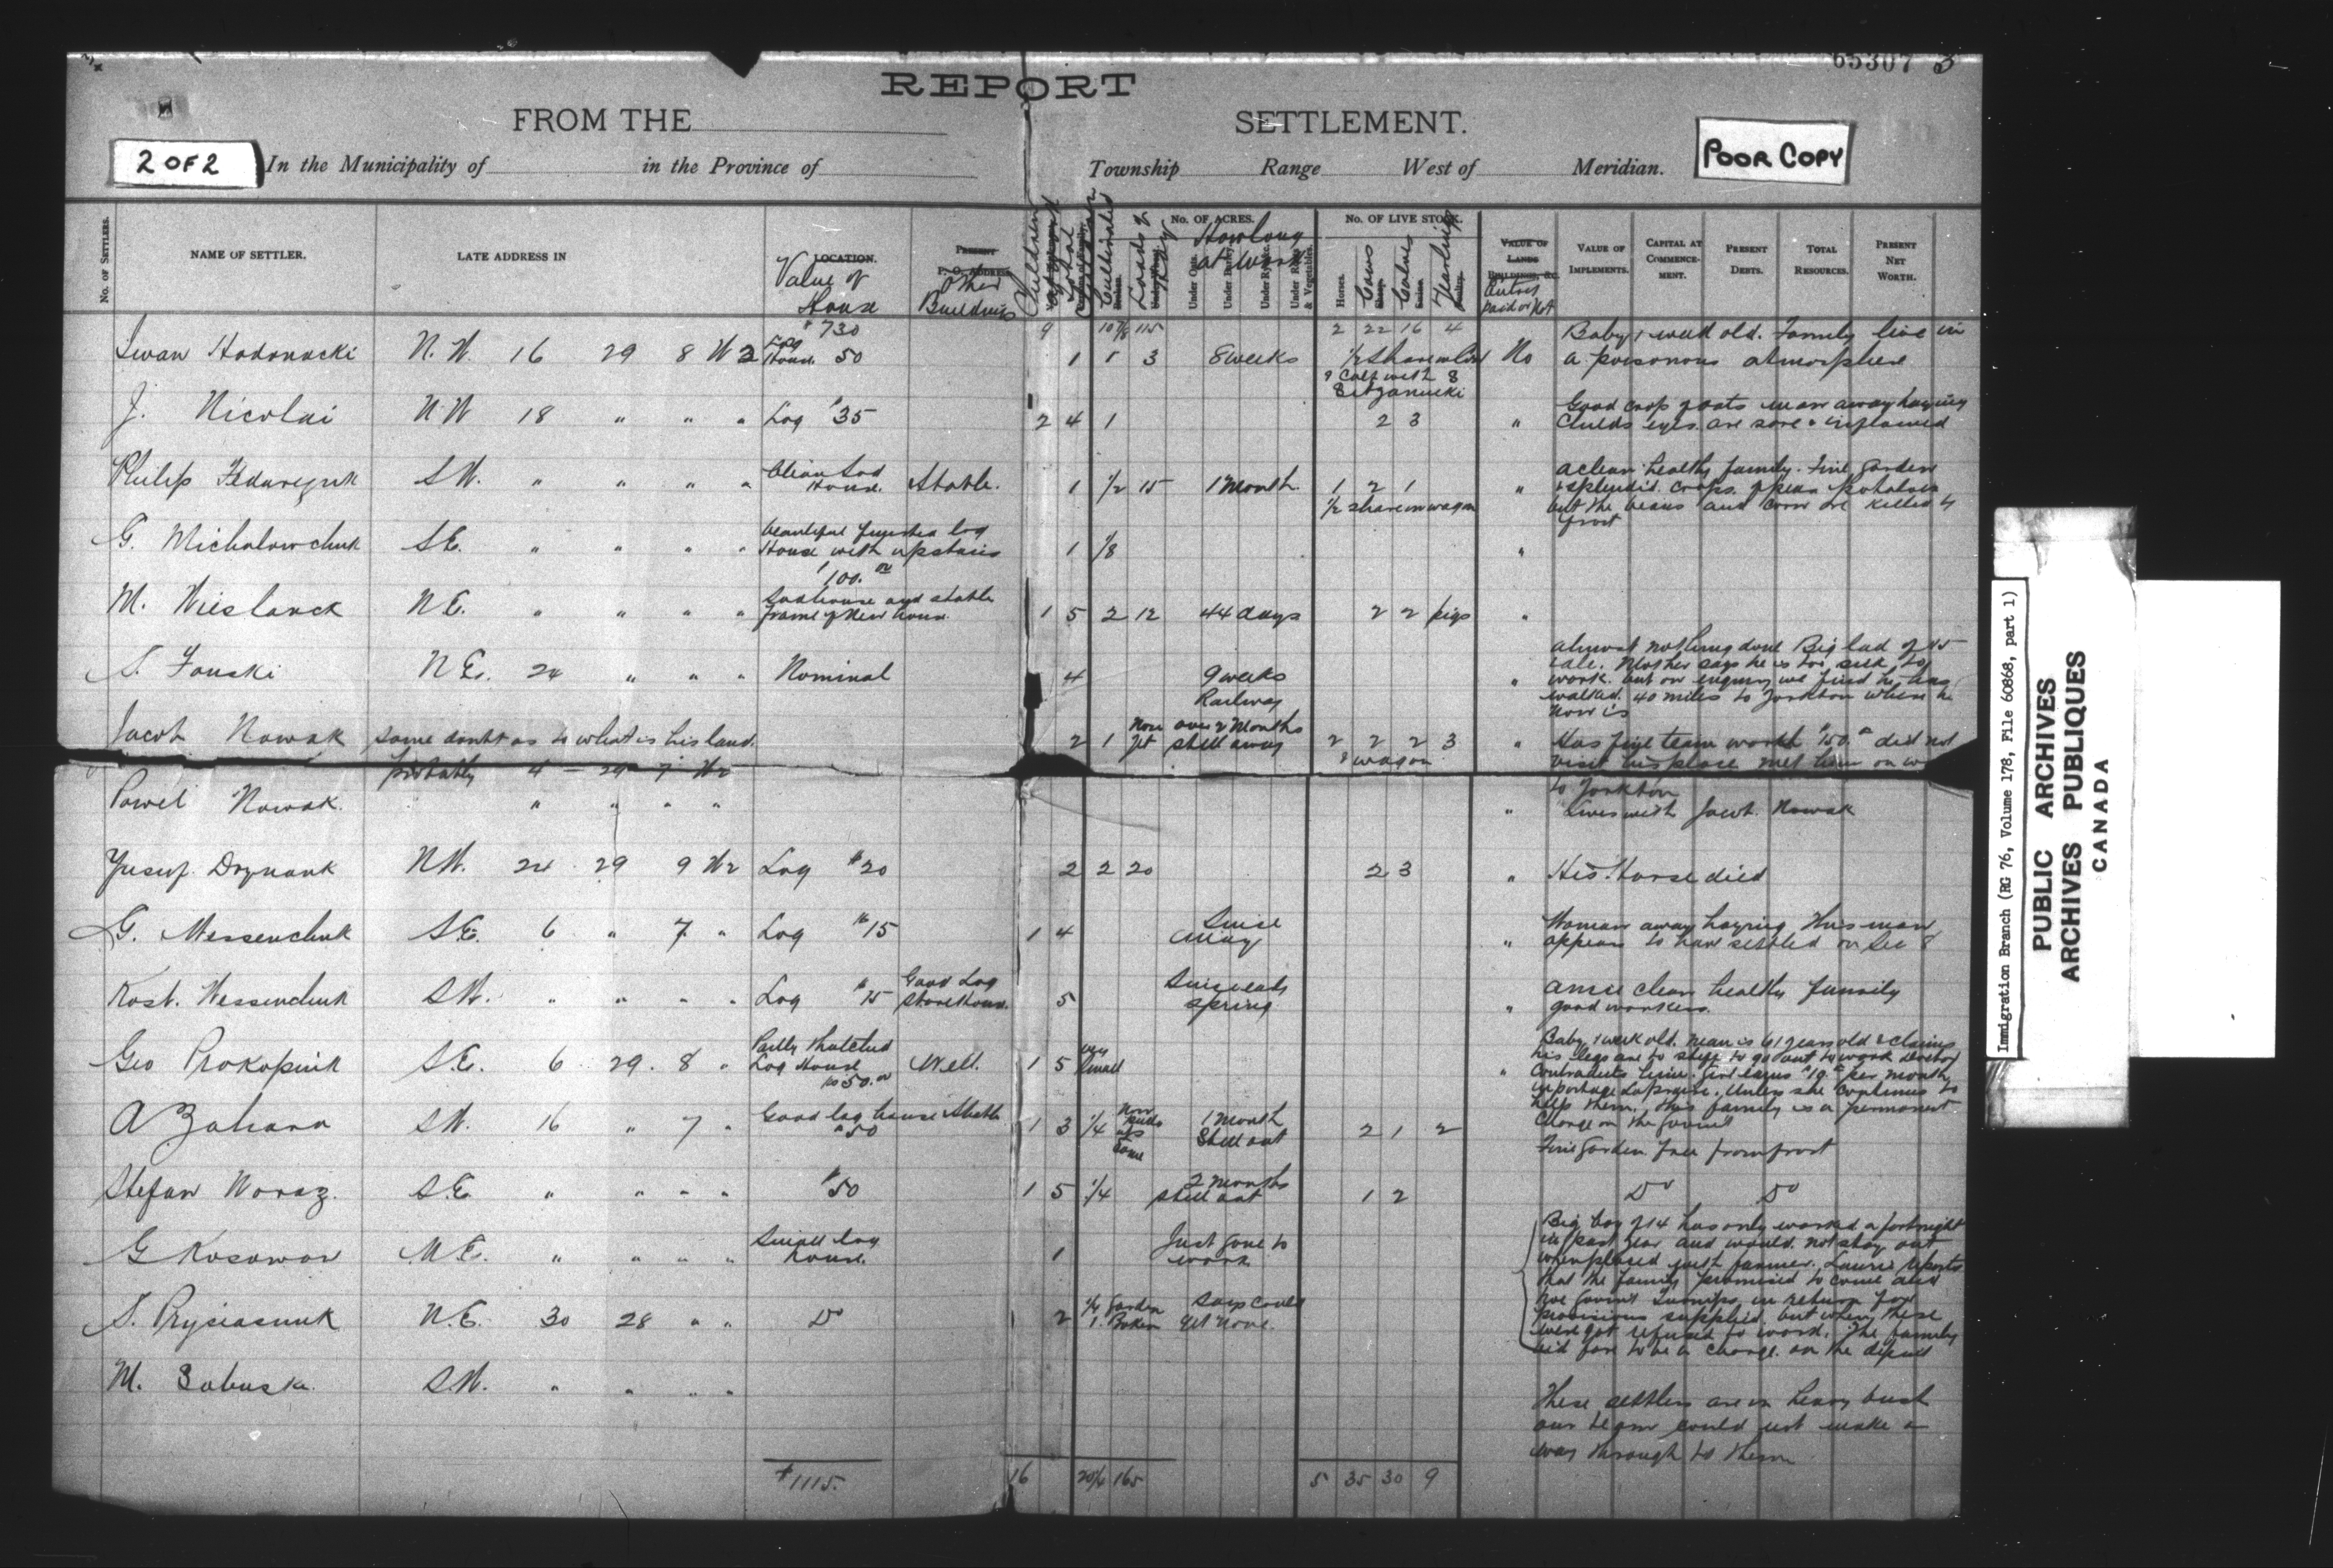 65307 3
REPORT
FROM THE SETTLEMENT.
2 OF 2
In the Municipality of in the Province of Township Range West of Meridian.
POOR COPY
No. OF SETTLERS.
NAME OF SETTLER.
LATE ADDRESS IN
LOCATION.
Value of House
PRESENT P. O. ADDRESS
Other Buildings
Children
Cultivated
Loads of Hay
No. OF ACRES.
How long at work
Under Oats.
Under Barley.
Under Rye, etc.
Under Roots & Vegetables.
No. OF LIVE STOCK.
Horses.
Cows
Calves
Yearlings
VALUE OF LANDS BUILDINGS, &C.
paid or not
VALUE OF IMPLEMENTS.
CAPITAL AT COMMENCEMENT.
PRESENT DEBTS.
TOTAL RESOURCES.
PRESENT NET WORTH.
$730 9 10 7/8 115 2 22 16 4
Iwan Hodonacki N.W. 16 29 8 W 2 Log House 50 1 1 3 8 weeks 1/2 share in No
Baby 1 week old. Family live in
a poisonous atmosphere
Calf with 8
J. Nicolai N.W 18 " " " Log $35 2 4 1 2 3 "
Good crop of oats man away haying
Childs eyes are sore & inflamed
Philip S.W. " " " " Clean Sod House. Stable. 1 1/2 15 1 Month. 1 2 1 "
1/2 share in wagon
a clean healthy family. Fine garden
& splendid crops of peas potatoes
but the beans and corn are killed by
frost
G. Michalowchuk S.E. " " " " beautiful finished log
House with upstairs
100.00
1 1/8 "
M. Wieslanck N.E. " " " " Sod house and stable
frame of New house.
1 5 2 12 44 days 2 2 pigs "
S. Fouski N.E. 24 " " " Nominal 4 9 weeks
Railway "
almost nothing done Big lad of 15
idle. Mother says he is too sick to
work. but on enquiry we find he has
walked 40 miles to Yorkton where he
now is
Jacob Nowak some doubt as to what is his land.
probably 4 - 29 7 W2
2 1 None yet over 2 Months
still away 2 2 2 3 "
wagon
Has fine team worth $150.00 did not
visit his place met him on way
to Yorkton
Pawel Nowak. " " " " "
Lives with Jacob Nowak
Yusuf N.W. 24 29 9 W2 Log $20 2 2 20 2 3 "
His Horse died
G. Messenchuk S.E. 6 " 7 " Log $15 1 4 Since May "
Woman away haying this man
appears to have settled on Sec 8
Kost. Wessenchuk S.W. " " " " Log $15 Good Log
Storehouse. 5 Since early
Spring "
a nice clean healthy family
good workers.
Geo Prokopiuk S.E. 6 29. 8 " Partly thatched
Log House
$50.00
Well. 1 5 very small "
Baby 1 week old. man is 61 years old & claims
his legs are to stiff to go out to work doctor
contradicts him. Girl earns $10.00 per month
in portage La prairie. Unless she continues to
help them. this family is a permanent
charge on the Govmt
A Zahara S.W. 16 " 7 " Good log house Stable
$50
1 3 1/4 1 Month
Still out 2 1 2
Fine Garden free from frost
Stefan Woraz. S.E. " " " " $50 1 5 1/4 2 Months
still out 1 2
Do Do
G Kosowan N.E. " " " " Small log
house. 1 Just gone to
work
S. Prysiasnuk N.E. 30 28 " " Do 2 1/4 Garden
1. Broken
Says could
get none.
Big boy of 14 has only worked a fortnight
in past year and would not stay out
when placed with farmer. Laurie reports
that the family promised to come and
hoe Govmt Turnips in return for
provisions supplied but when these
were got refused to work. The family
bid fare to be a charge on the
M. Sabuska. S.W. " " " "
These settlers are in heavy bush
our team could not make a
way through to them
$1115. 16 20 1/4 165 5 35 30 9
Immigration Branch (RG 76, Volume 178, File 60868, part 1)
PUBLIC ARCHIVES
ARCHIVES PUBLIQUES
CANADA